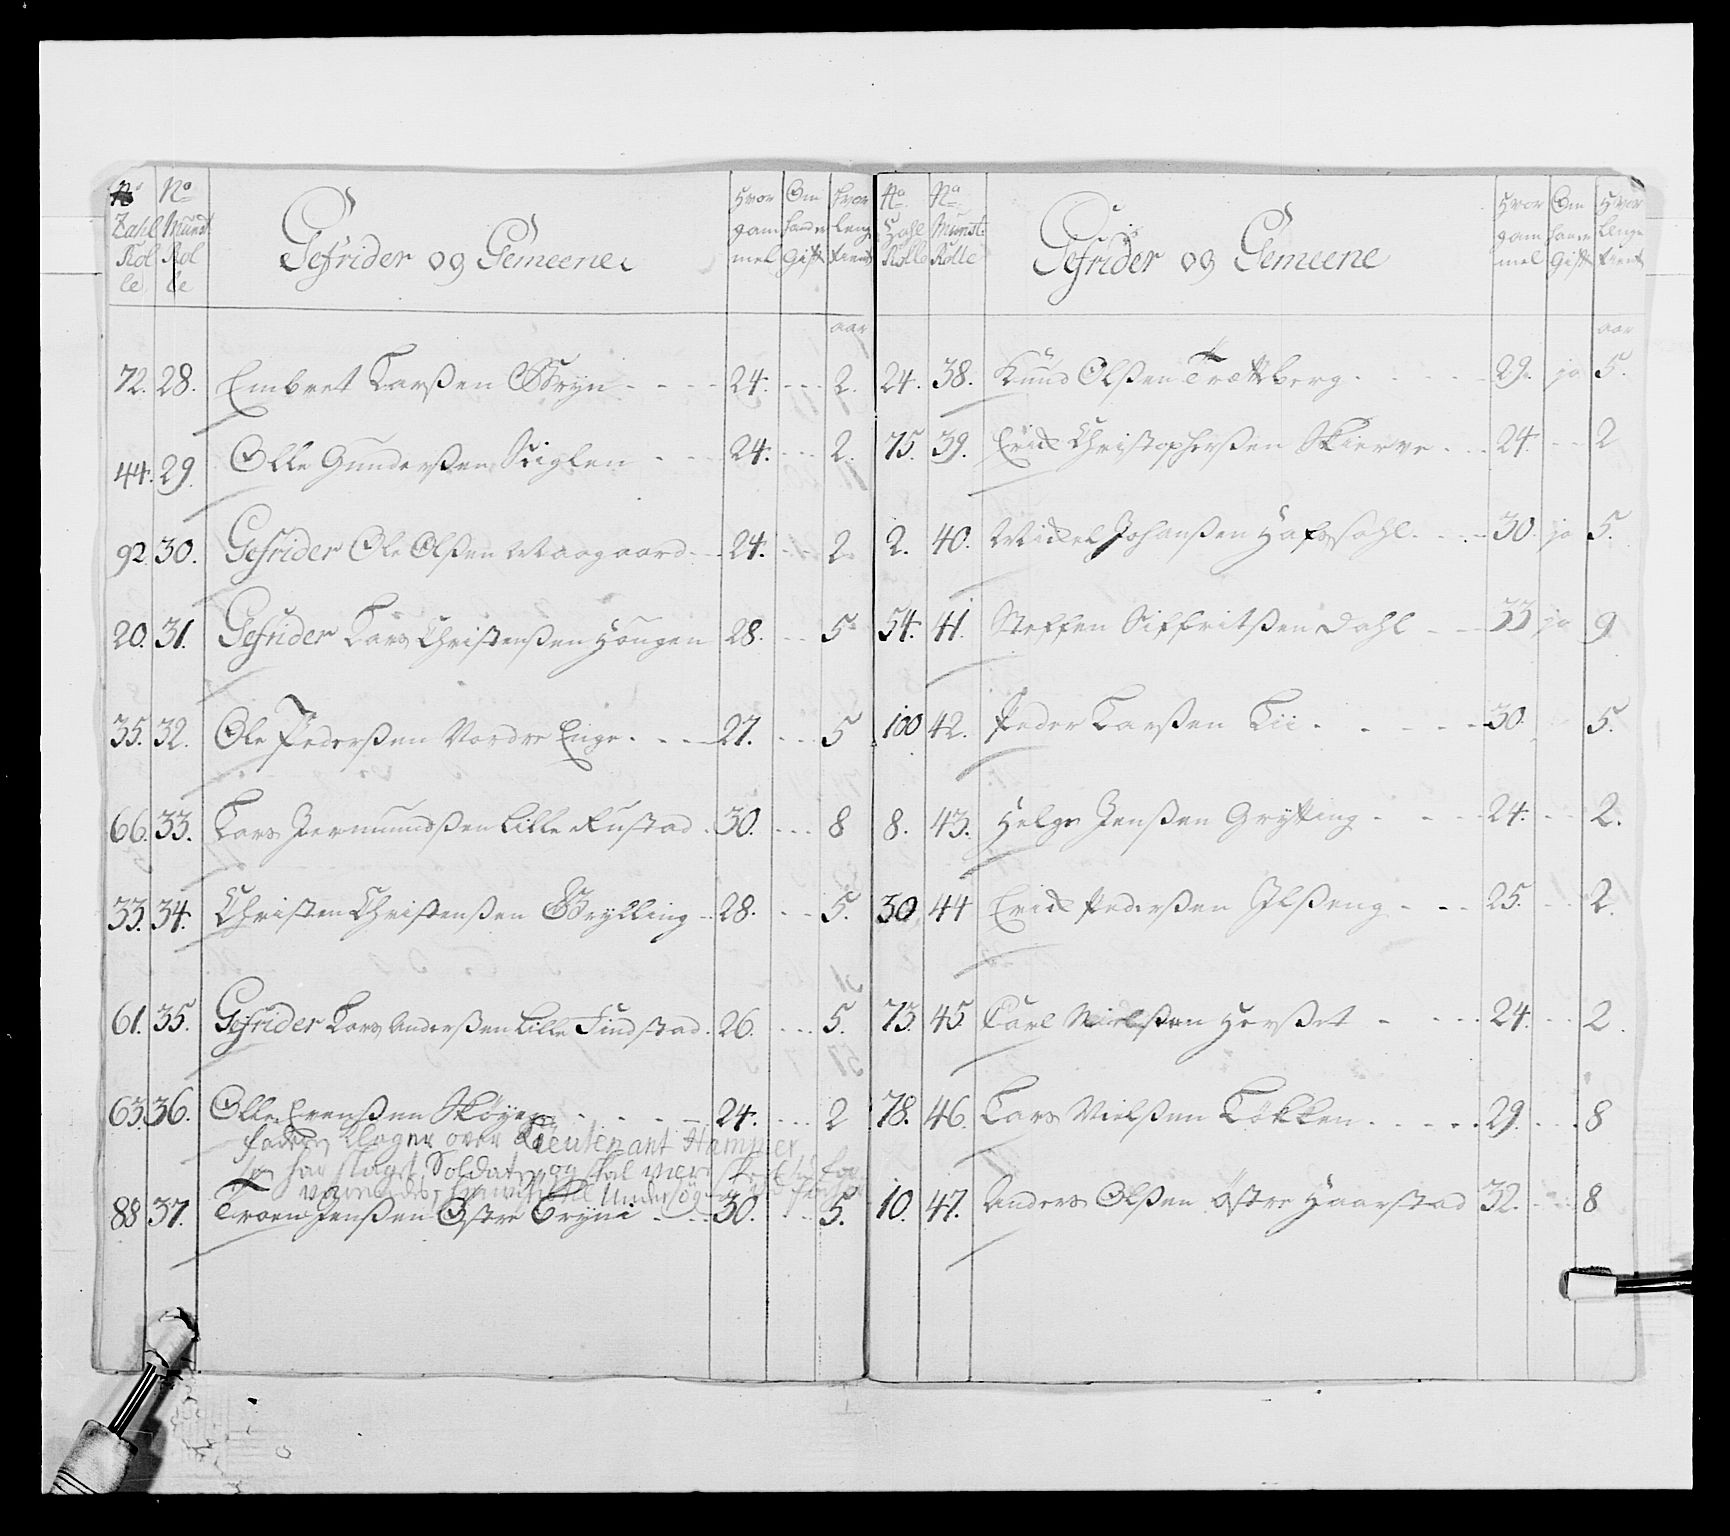 No Zahl Rolle | No Munst Rolle | Gefrider og Gemeene | Hvor gammel | Om hand er Gift | Hvor lenge tient
aar
72. 28. Embret Larßen Gryn - - - 24. - - - 2.
44. 29. Olle Gunderßen Stiglen - - - 24. - - - 2.
92. 30. Gefrider Ole Olßen Maagaard - - 24. - - 2.
20. 31. Gefrider Lars Christenßen Hougen 28. - - 5
35. 32. Ole Pederßen Nordre Enge - - - 27. - - - 5
66. 33. Lars Jermundsßen Lille Rustad - 30. - - - 8
33. 34. Christen Christenßen Grylling - - 28. - - - 5.
61. 35. Gefrider Lars Anderßen Lille Findstad - 26. - - - 5.
63. 36. Olle Evenßen Skøyen - - - 24. - - - 2
fader klager over Lieutenant Hammer
har slaget Soldaten og skal være
88 37. Troen Jenßen Østre Gryni - - - 30. - - - 5.
No Zahl Rolle | No Munst. Rolle | Gefrider og Gemeene | Hvor gammel | Om hand er Gift | Hvor lenge tient
aar
24. 38. Knud Olßen Trættberg - - - 29. ja 5.
75. 39. Erich Christopherßen Skierve - - - 24. - - 2
2. 40. Michel Johanßen Hafssahl - - - 30. ja 5.
54. 41. Steffen Siffritßen Dahl - - 33 ja 9
100 42. Peder Larßen Lii - - - 30. 5.
8. 43. Helge Jenßen Grytting - - - 24. - - 2.
30. 44 Erich Pederßen Ilßeng - - - 25. - - 2.
73. 45 Carl Nielßen Herßet - - - 24. - - 2.
78. 46. Lars Nielßen Løkken - - - 29. - - - 8
10. 47. Anders Olßen Østre Haarstad 32. - - - 8